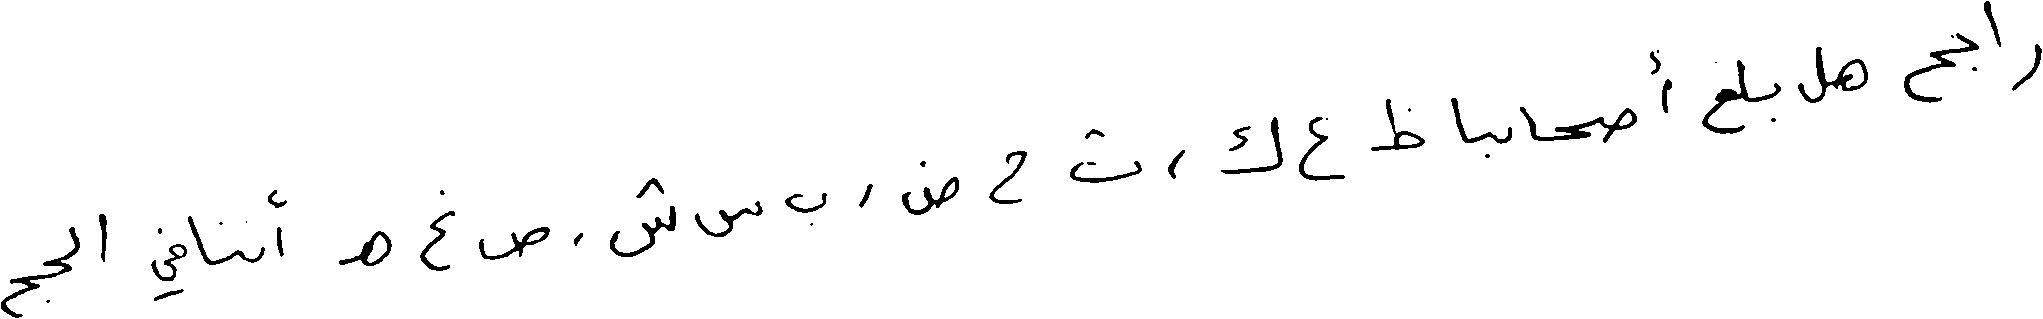 راجح هل بلغ أصحابنا ظ ع ك ، ث ح ض ، ب س ش ، ص غ ه أننا في الحج